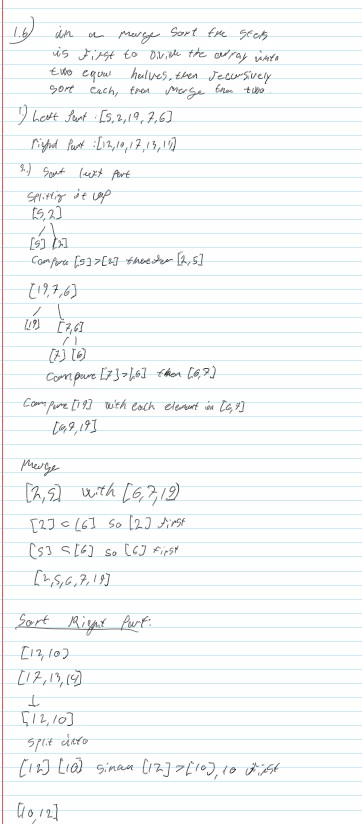 1.b) in a merge sort the steps
is first to divide the array into
two equal halves, then recursively
sort each, then merge the two
1) Left Part: [5,2,19,7,6]
Right Part: [12,10,17,13,15]
2.) Sort left part
Splitting it up
[5,2]
[5] [2]
Compare [5]>[2] therefore [2,5]
[19,7,6]
[19] [7,6]
[7] [6]
Compare [7]>[6] then [6,7]
Compare [19] with each element in [6,7]
[6,7,19]
Merge
[2,5] with [6,7,19]
[2]<[6] so [2] first
[5]<[6] so [6] first
[2,5,6,7,19]
Sort Right Part:
[12,10]
[17,13,15]
↓
[12,10]
split into
[12] [10] since [12]>[10], 10 first
[10,12]